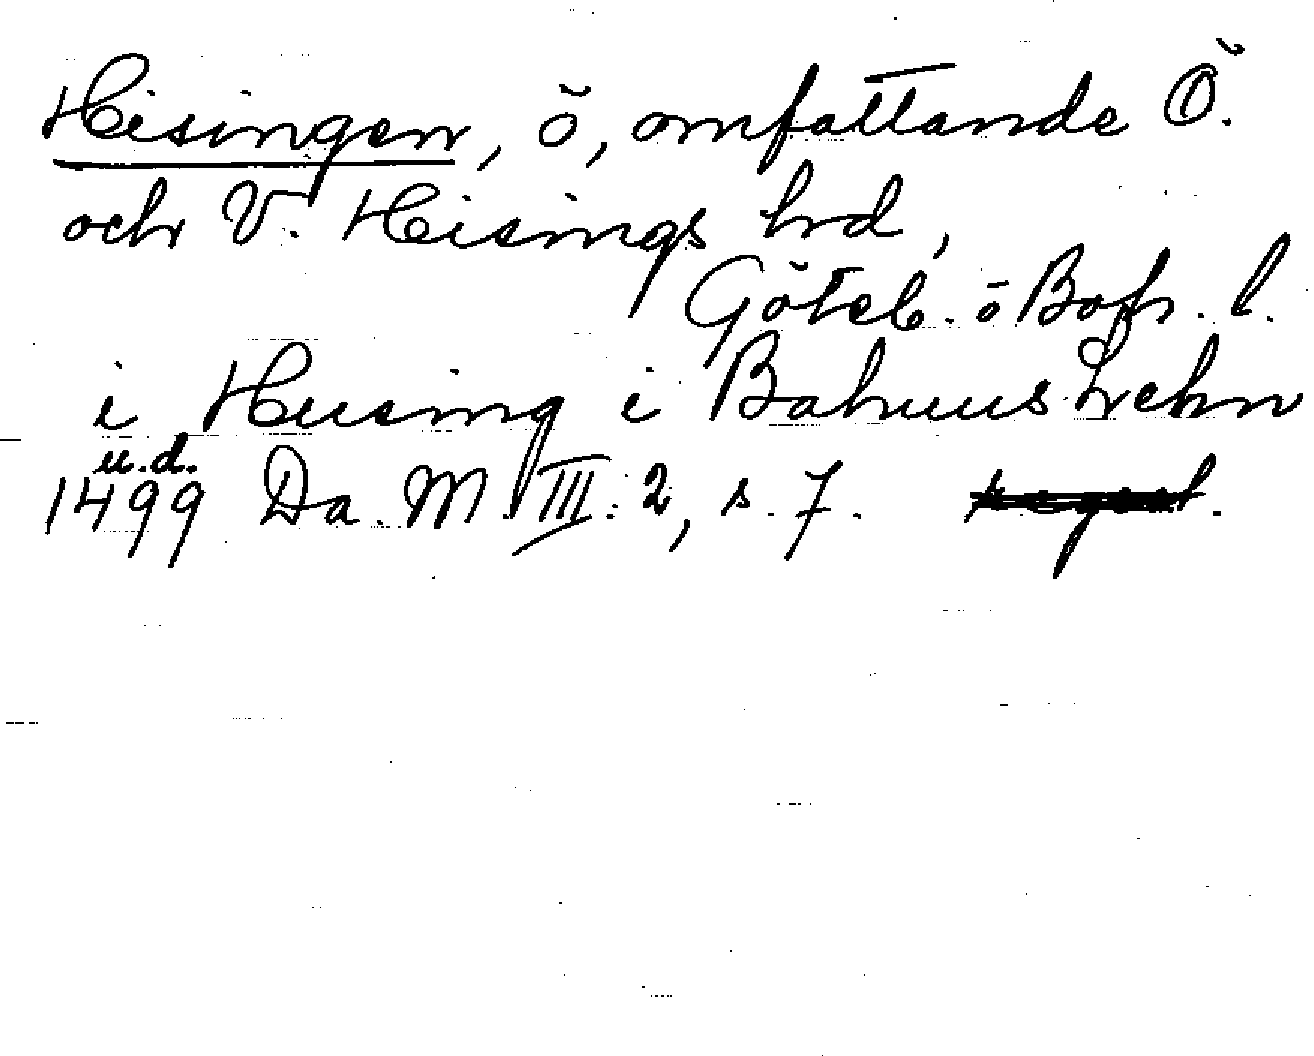 Hisingen, ö, omfattande Ö.
och V. Hisings hrd,
Göteb. o Boh. l.
i Hiising i Bahuus Lehn
u.d.
1499 Da M. III: 2, s. 7.